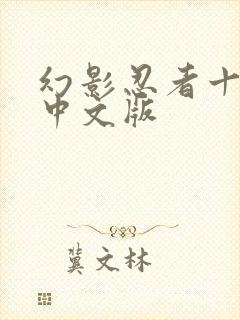 幻影忍者十
中文版
冀文林